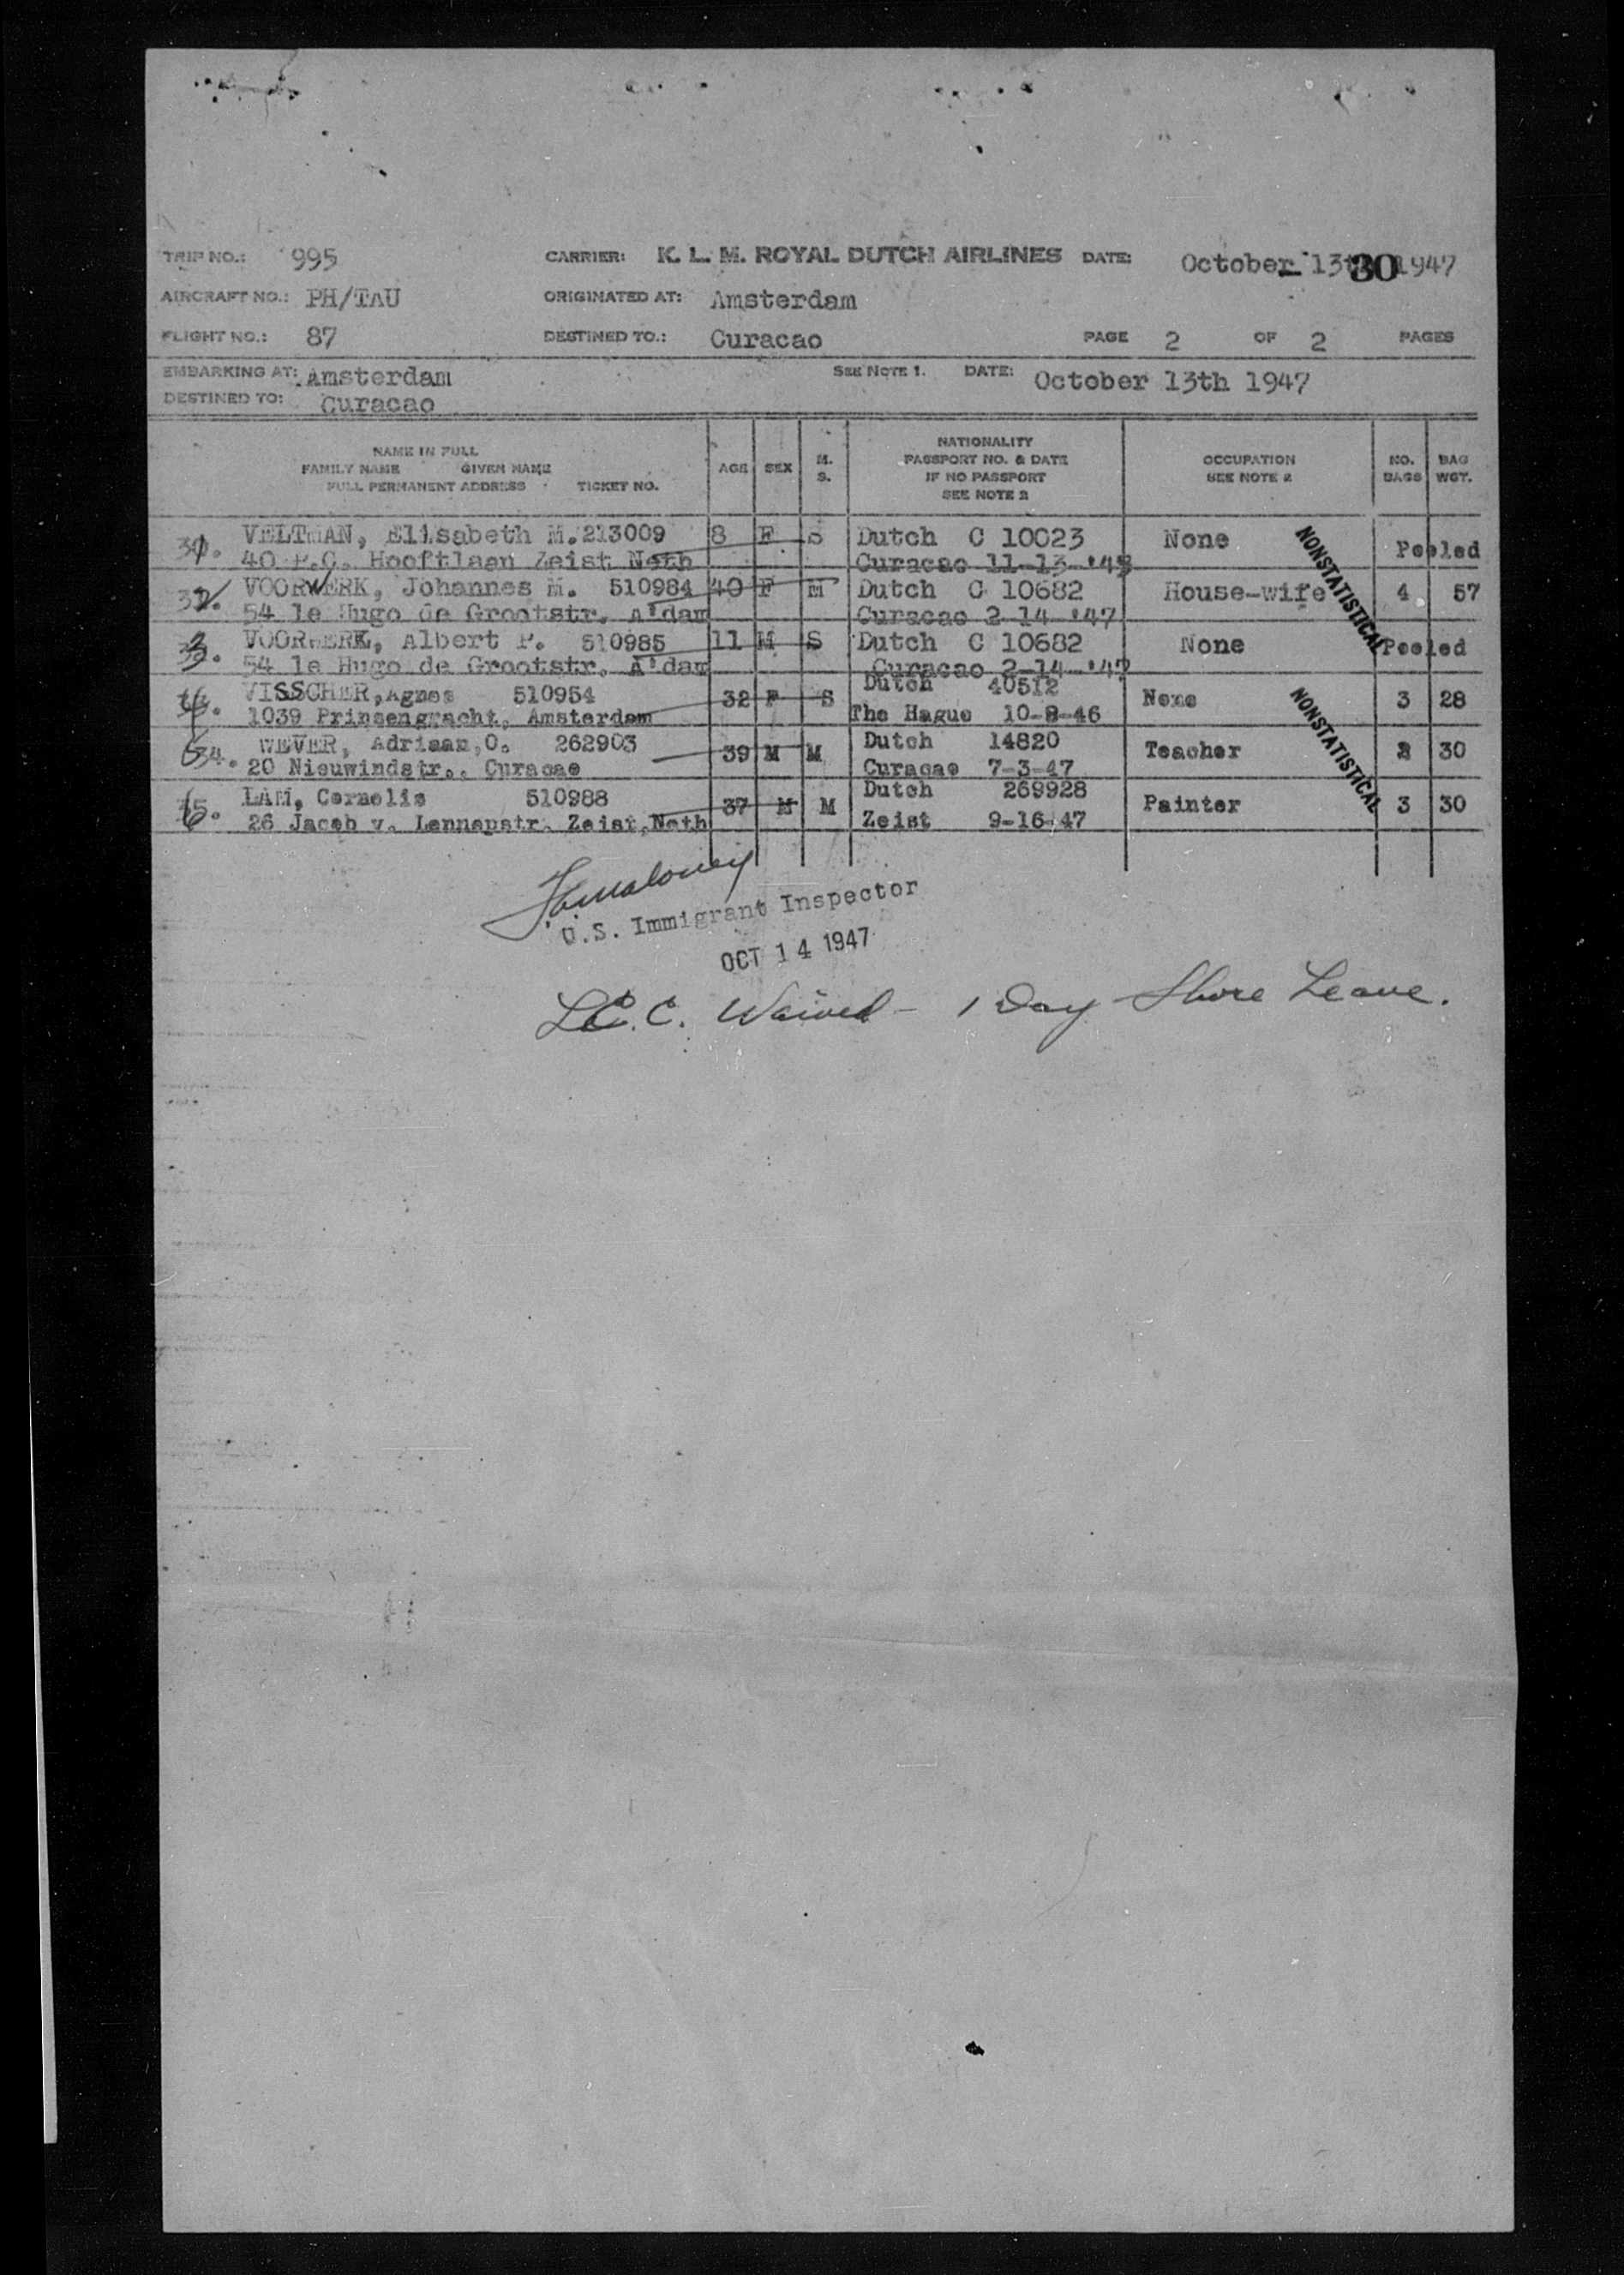 TRIP NO.: 995 CARRIER: K. L. M. ROYAL DUTCH AIRLINES DATE: October 13th 30 1947
AIRCRAFT NO.: PH/TAU ORIGINATED AT: Amsterdam
FLIGHT NO.: 87 DESTINED TO.: Curacao PAGE 2 OF 2 PAGES
EMBARKING AT: Amsterdam SEE NOTE 1. DATE: October 13th 1947
DESTINED TO: Curacao
NAME IN FULL
FAMILY NAME GIVEN NAME
FULL PERMANENT ADDRESS TICKET NO.
AGE SEX M. S.
NATIONALITY
PASSPORT NO. & DATE
IF NO PASSPORT
SEE NOTE 2
OCCUPATION
SEE NOTE 2
NO. BAGS
BAG WGT.
VELTMAN, Elisabeth M. 213009 8 F S Dutch C 10023 None Pooled
40 P.C. Hooftlaan Zeist Neth Curacao 11-13-'45
VOORWERK, Johannes M. 510984 40 F M Dutch C 10682 House-wife 4 57
54 le Hugo de Grootstr. A'dam Curacao 2-14-'47
NONSTATISTICAL
VOORWERK, Albert P. 510985 11 M S Dutch C 10682 None Pooled
54 le Hugo de Grootstr. A'dam Curacao 2-14-'47
VISSCHER, Agnes 510954 32 F S Dutch 40512 None 3 28
1039 Prinsengracht, Amsterdam The Hague 10-8-46
34. WEVER, Adriaan, O. 262903 39 M M Dutch 14820 Teacher 2 30
20 Nieuwindstr.. Curacao Curacao 7-3-47
NONSTATISTICAL
LAM, Cornelis 510988 37 M M Dutch 269928 Painter 3 30
26 Jacob v. Lennepstr. Zeist, Neth Zeist 9-16-47
U.S. Immigrant Inspector
OCT 14 1947
Waived - 1 Day Shore Leave.